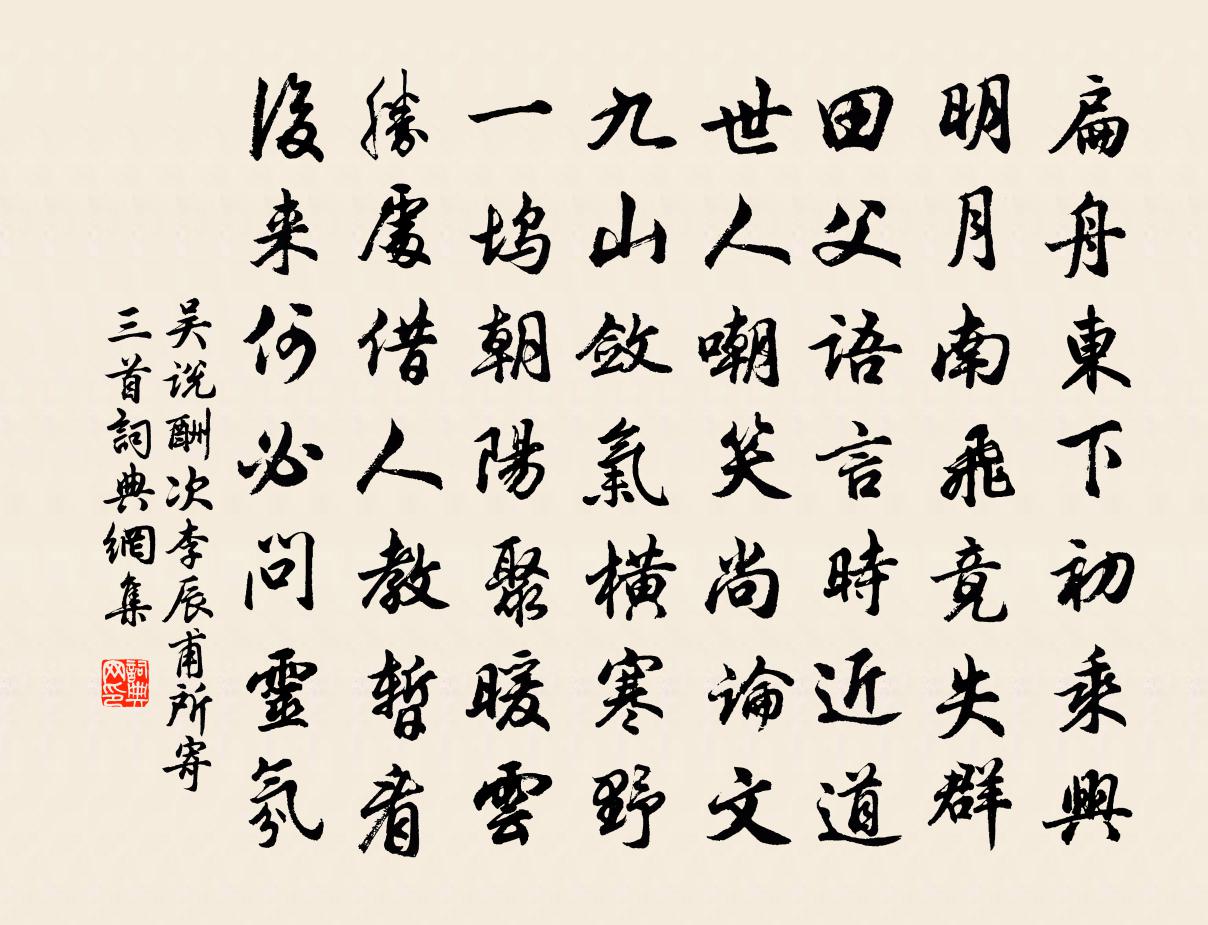 扁舟東下初乘興
明月南飛竟失群
田父語言時近道
世人嘲笑尚論文
九山斂氣橫寒野
一塢朝陽聚暖雲
勝處借人教暫看
後来何必問靈氛
吴说酬次李辰甫所寄
三首詞典網集
詞典
网印